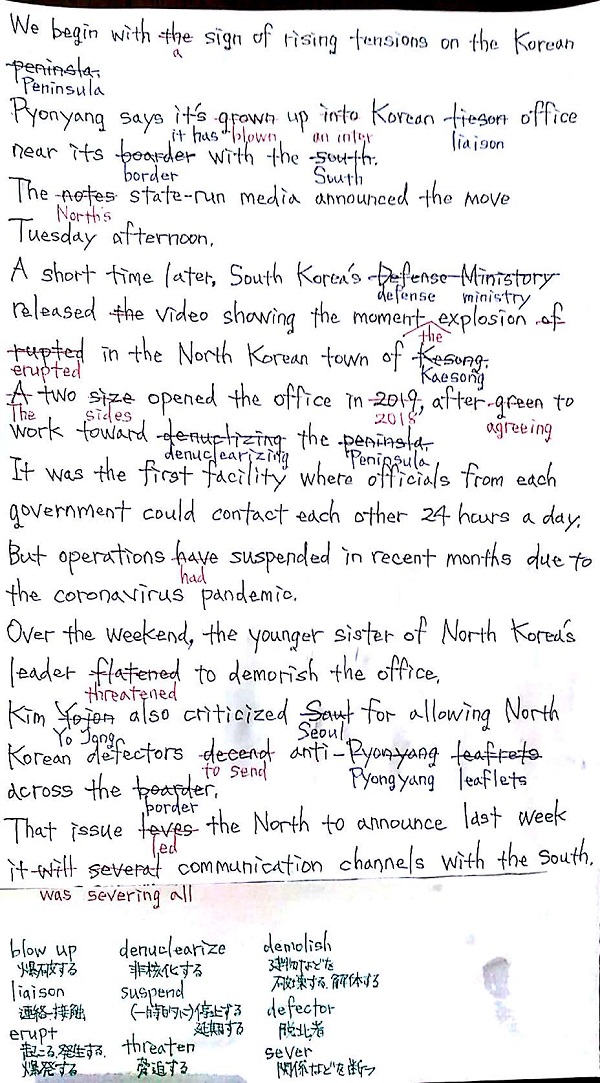 We begin with the sign of rising tensions on the Korean
a
peninsla.
Peninsula
Pyonyang says it's grown up into Korean tieson office
it has blown an inter liaison
near its boarder with the south.
border South
The notes state-run media announced the move
North's
Tuesday afternoon.
A short time later, South Korea's Defense Ministory
defense ministry
released the video showing the moment explosion of
the
rupted in the North Korean town of Kesong.
erupted Kaesong
A two size opened the office in 2019, after green to
The sides 2018 agreeing
work toward denuclizing the peninsla.
denuclearizing Peninsula
It was the first facility where officials from each
government could contact each other 24 hours a day.
But operations have suspended in recent months due to
had
the coronavirus pandemic.
Over the weekend, the younger sister of North Korea's
leader flatened to demorish the office.
threatened
Kim Yojon also criticized Saul for allowing North
Yo Jong Seoul
Korean defectors decend anti-Pyonyang leafrets
to send Pyongyang leaflets
across the boarder.
border
That issue leves the North to announce last week
led
it will several communication channels with the South.
was severing all
blow up denuclearize demolish
爆破する 非核化する 建物などを
破壊する、解体する
liaison suspend defector
連絡・接触 (一時的に)停止する 脱北者
延期する
erupt threaten sever
起こる、発生する、 脅迫する 関係などを断つ
爆発する